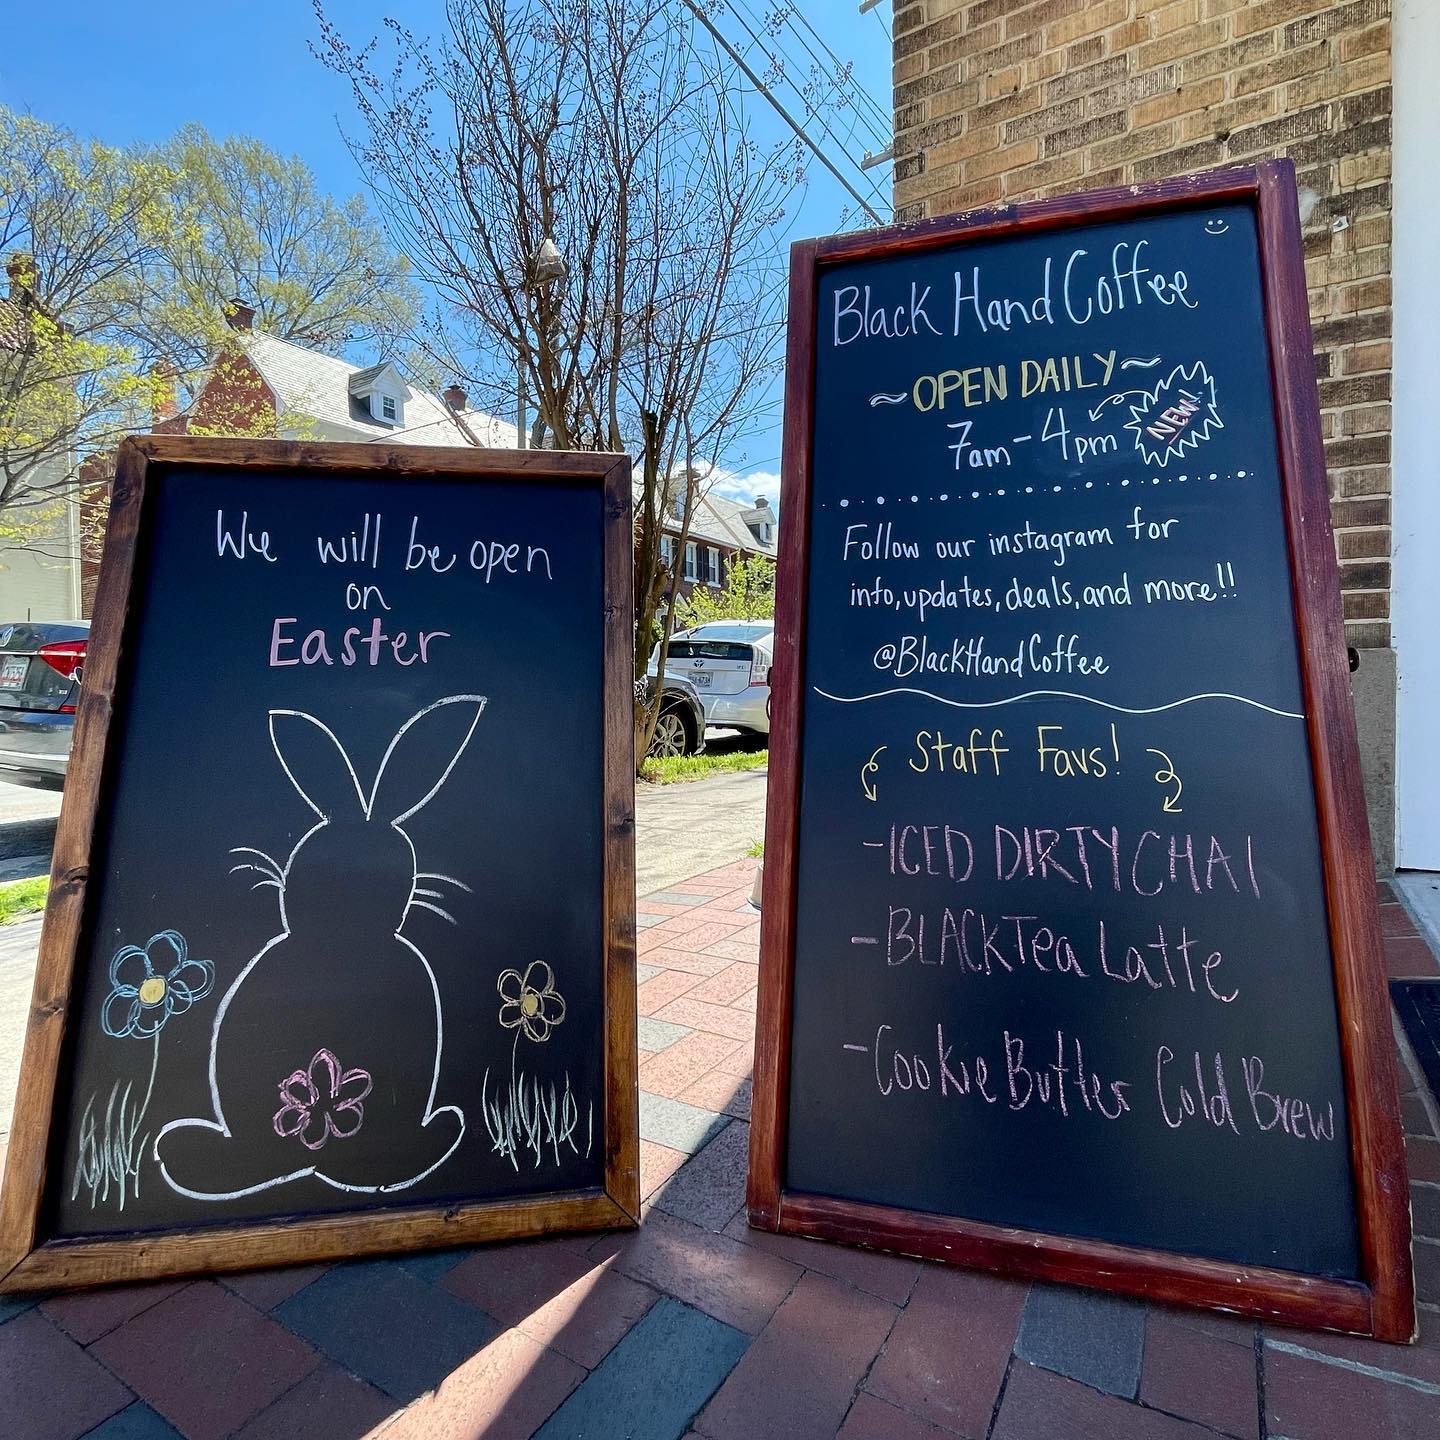 We will be open
on
Easter
Black Hand Coffee
~OPEN DAILY~
7am-4pm
NEW!
Follow our instagram for
info, updates, deals, and more!!
@BlackHandCoffee
Staff Favs!
-ICED DIRTY CHAI
-BLACKTea Latte
-Cookie Butter Cold Brew